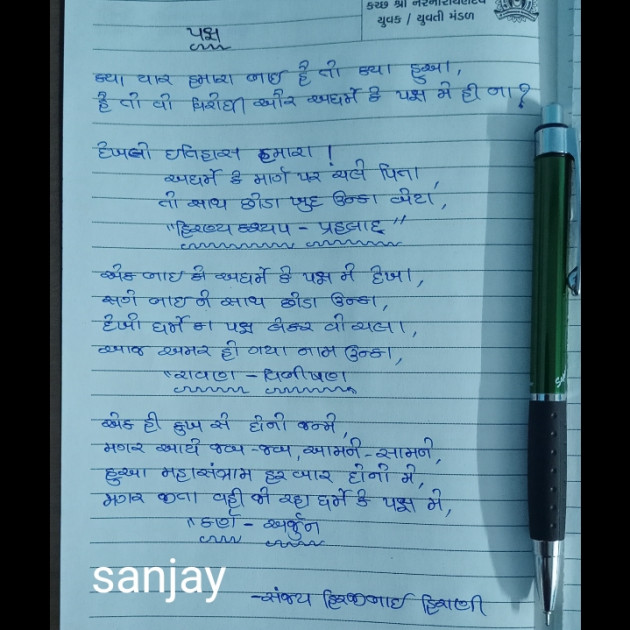 કચ્છ શ્રી નરનારાયણદેવ
યુવક / યુવતી મંડળ
પક્ષ
ક્યા યાર હમારા ભાઈ હૈ તો ક્યા હુઆ,
હૈ તો વો વિરોધી ઔર અધર્મ કે પક્ષ મે હી ના?
દેખલો ઇતિહાસ હમારા!
અધર્મ કે માર્ગ પર ચલે પિતા,
તો સાથ છોડા ખુદ ઉનકા બેટા,
"હિરણ્ય કશ્યપ - પ્રહલાદ"
એક ભાઈ કો અધર્મ કે પક્ષ મે દેખા,
સગે ભાઈ ને સાથ છોડા ઉનકા,
દેખો ધર્મ કા પક્ષ લેકર વો ચલા,
આજ અમર હો ગયા નામ ઉનકા,
"રાવણ - વિભીષણ
એક હી કુખ સે દોનો જન્મે,
મગર આયે જબ-જબ, આમને-સામને,
હુઆ મહાસંગ્રામ હર બાર દોનો મે,
મગર જીતા વહી જો રહા ધર્મ કે પક્ષ મે,
"કર્ણ - અર્જુન
sanjay
-સંજય હિરજીભાઈ હિરાણી